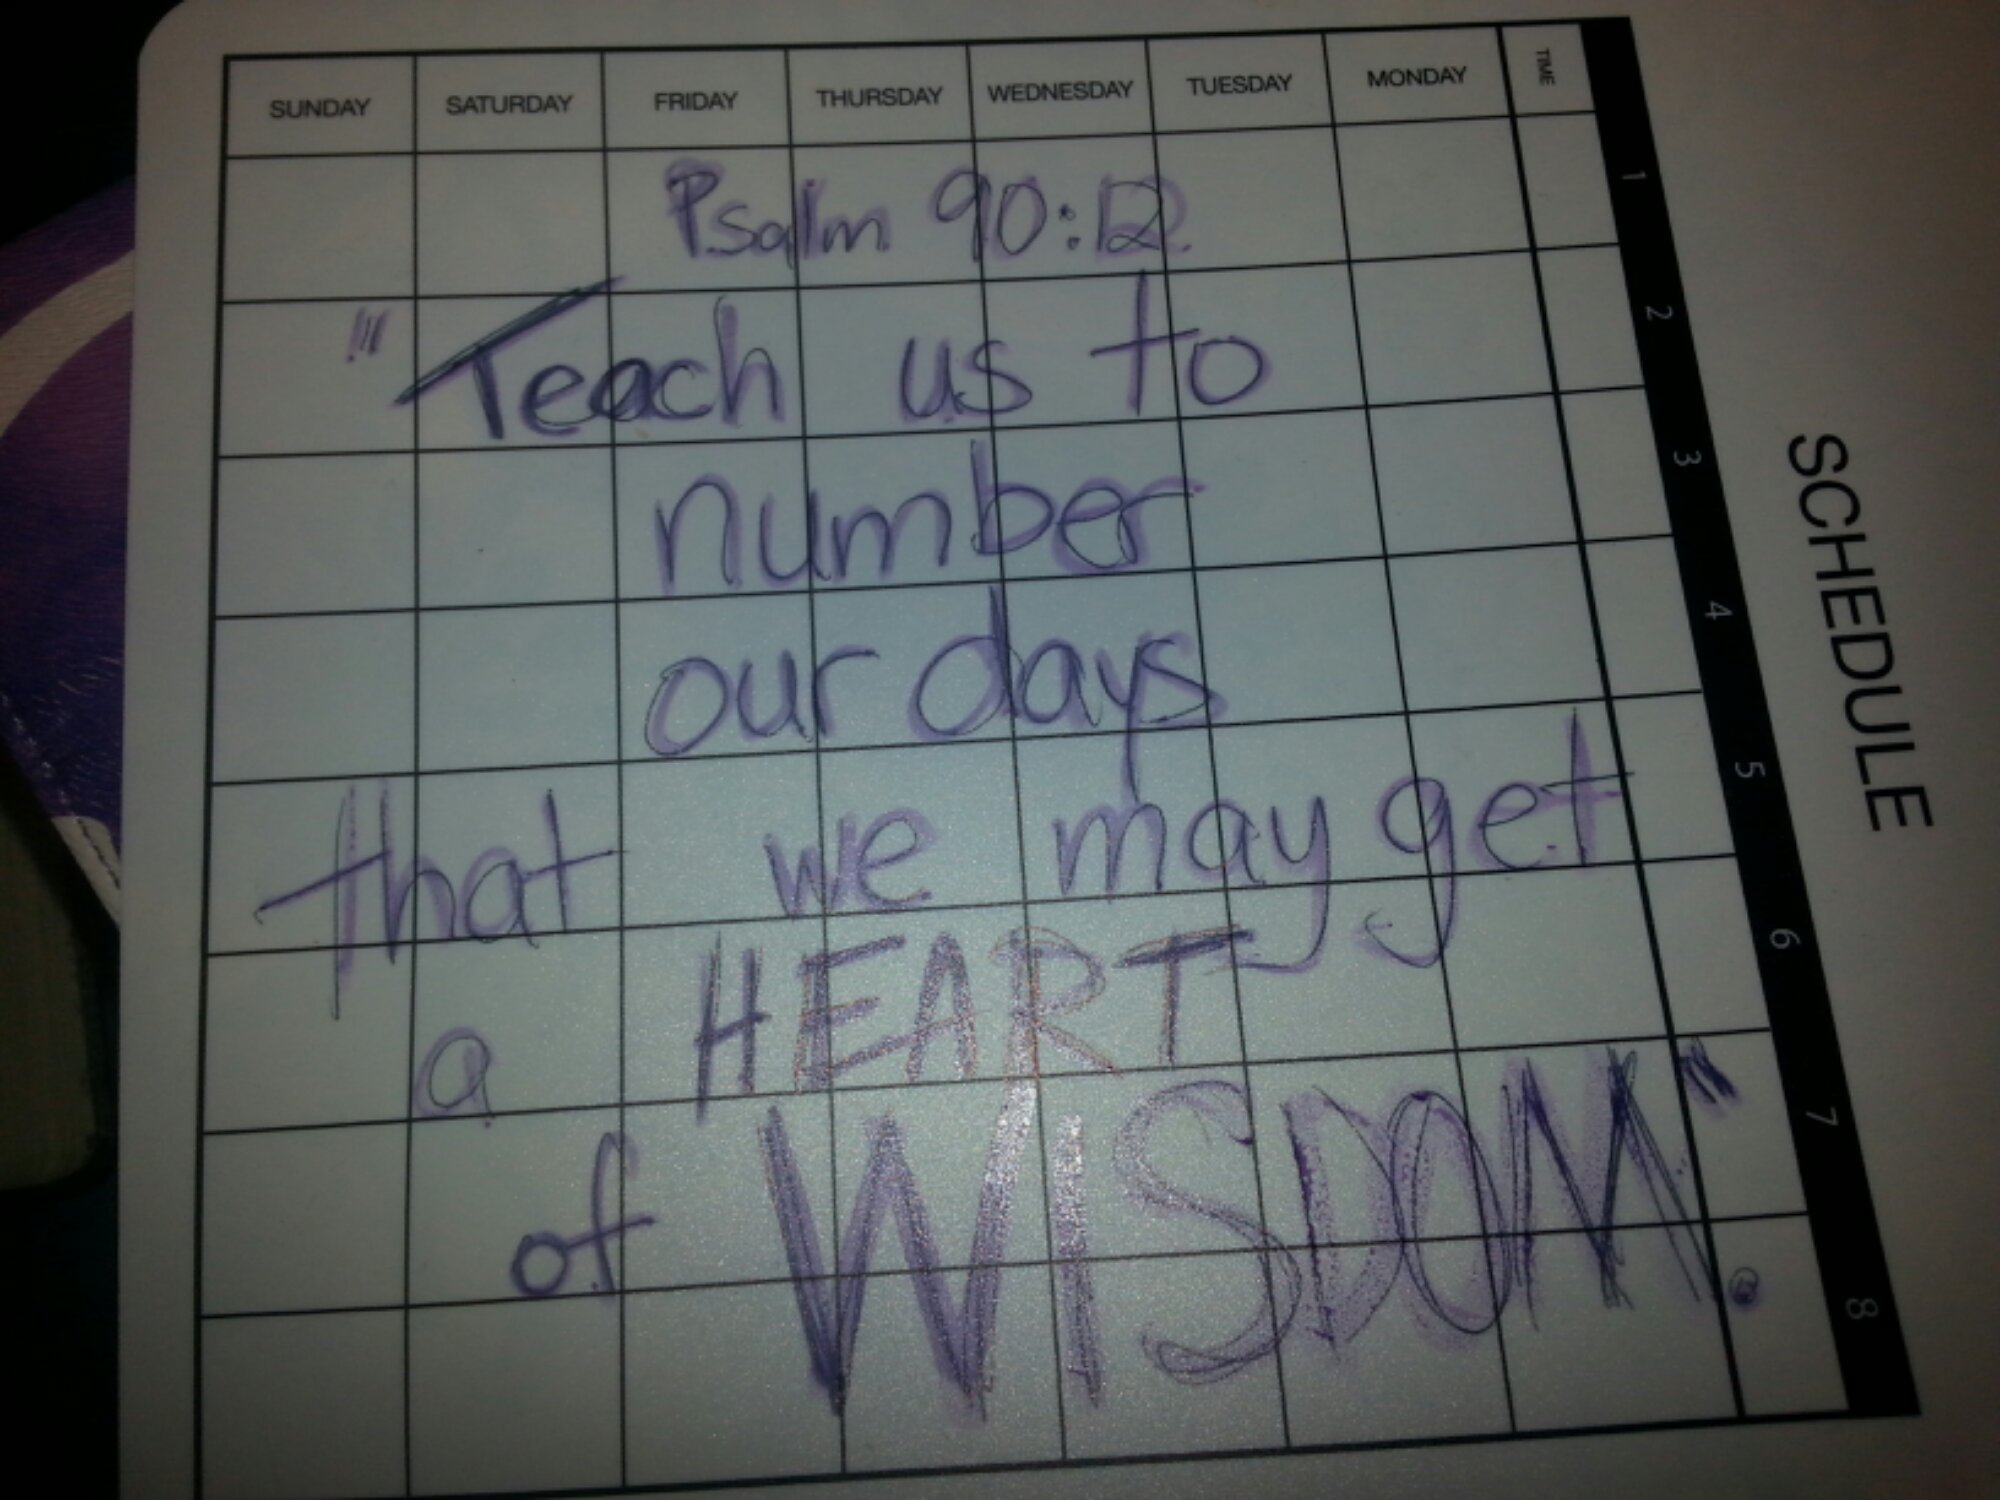 SUNDAY SATURDAY FRIDAY THURSDAY WEDNESDAY TUESDAY MONDAY TIME
Psalm 90:12
"Teach us to
number
our days
that we may get
a HEART
of WISDOM".
1
2
3
4
5
6
7
8
SCHEDULE